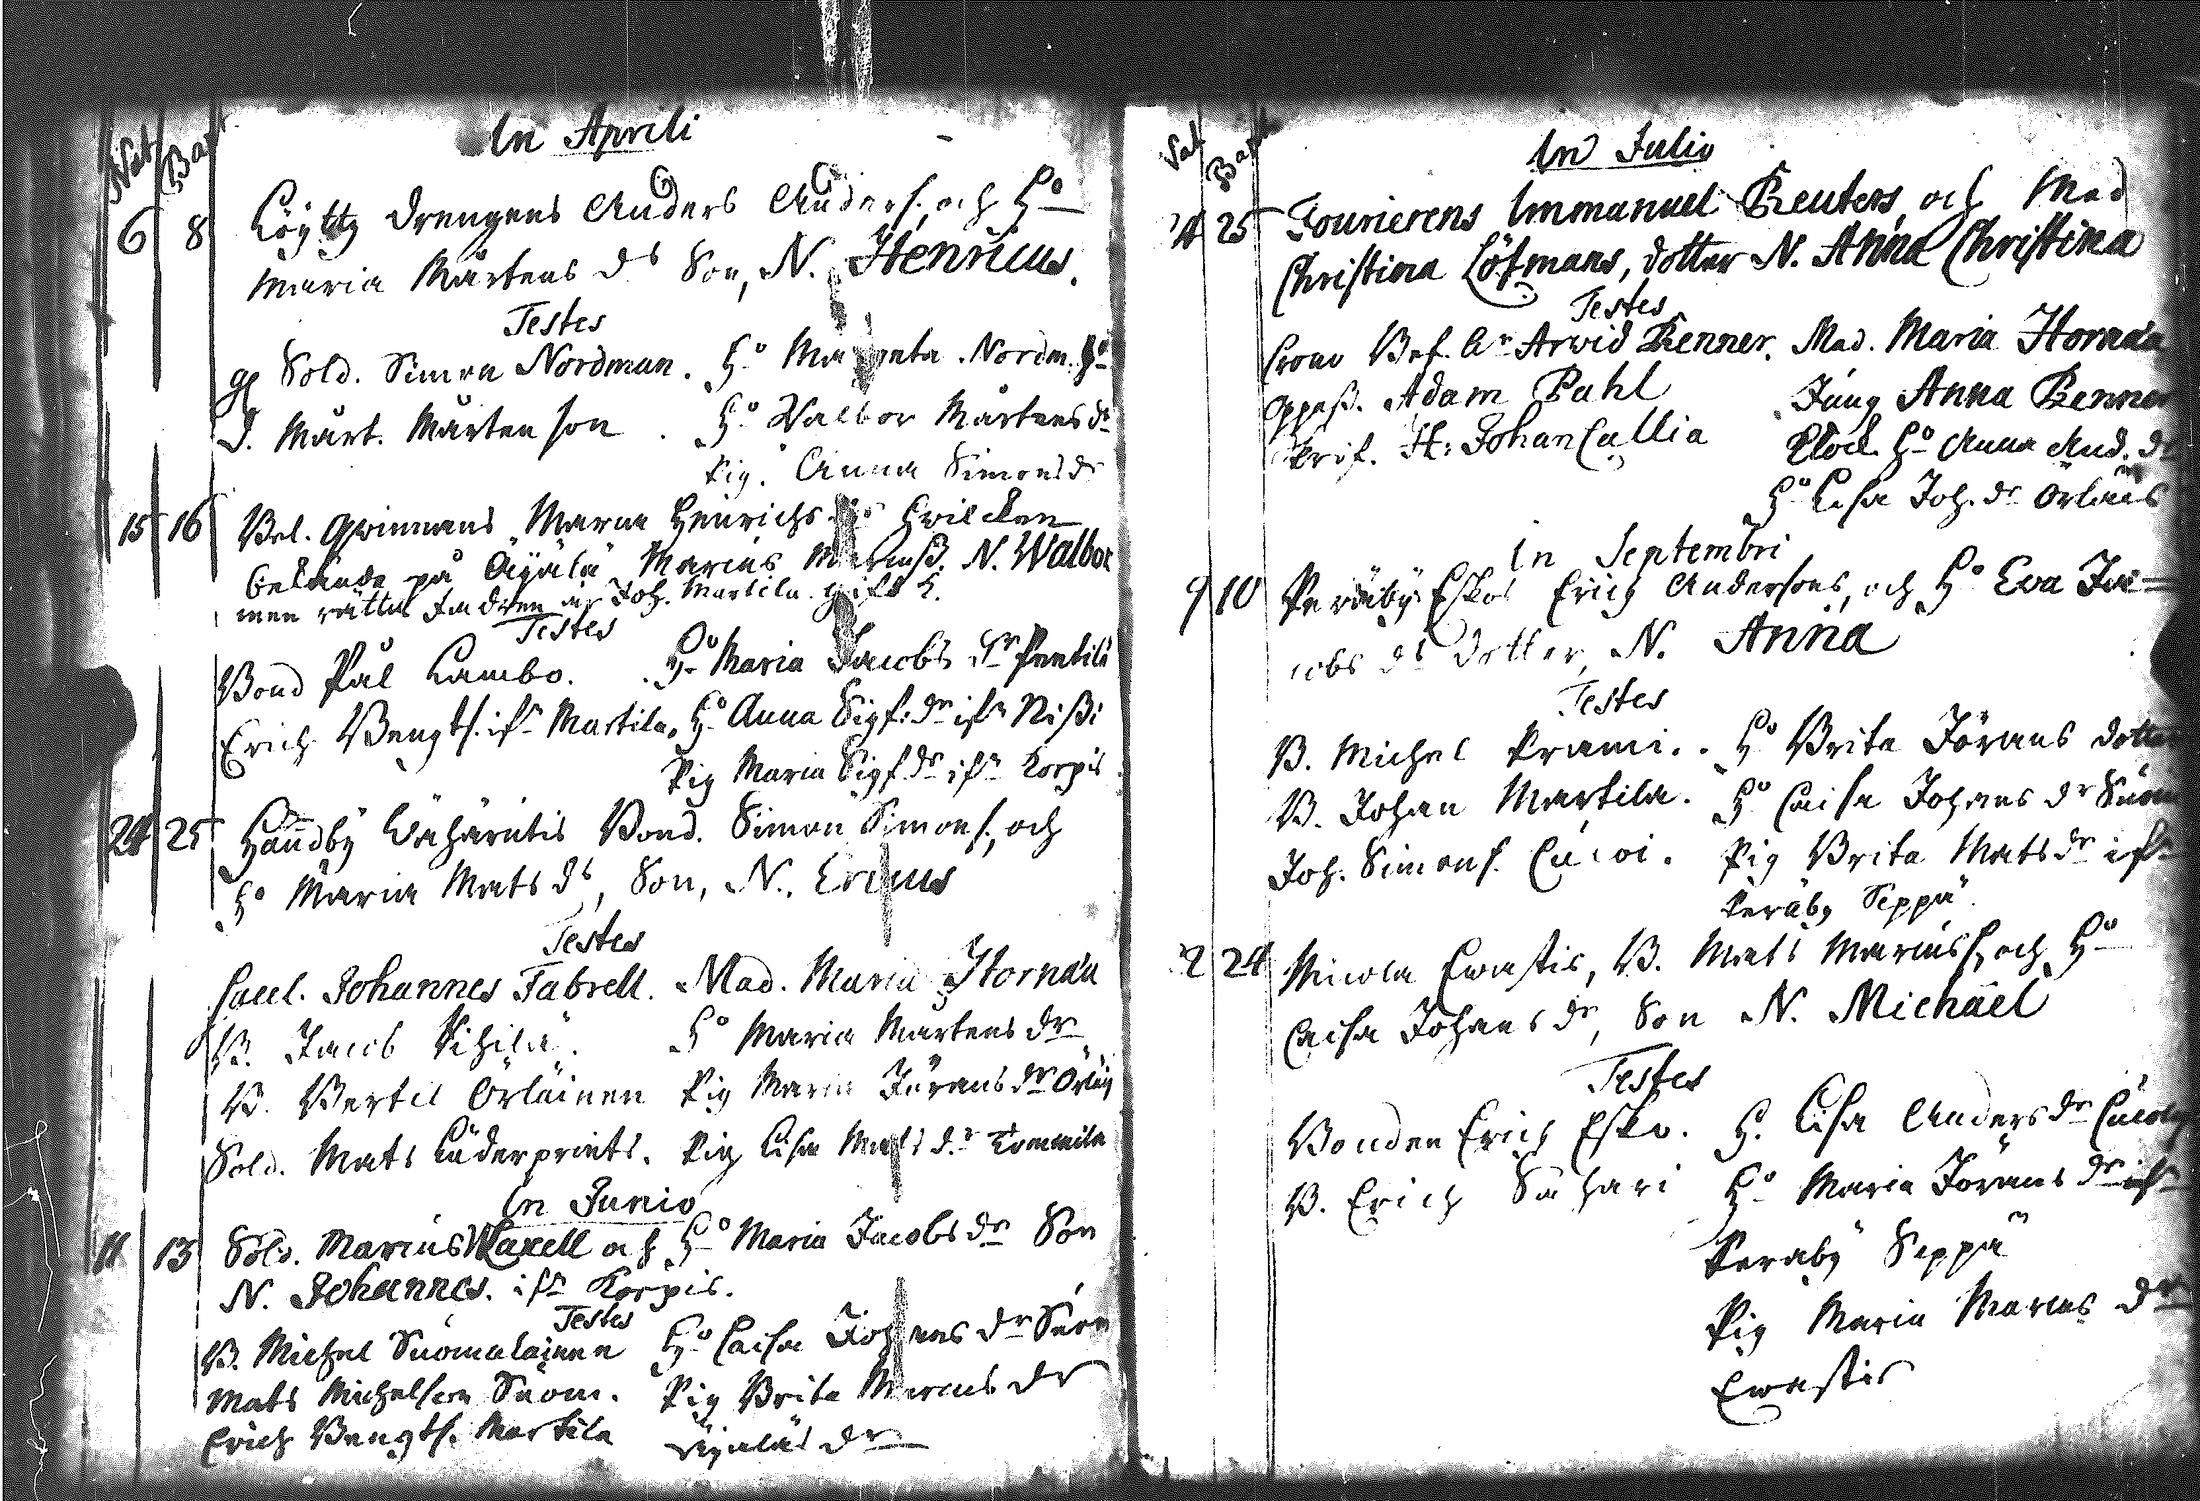 Nat Bapt
In Aprili
6 8 Löytty Drengens Anders Anders. och H:o
Maria Mårtens ds Son, N. Henricus.
Testes
Sold. Simon Nordman. H:o Margreta Nordm.
D. Mårt. Mårtenson. H:o Walbor Mårtens dr
Pig. Anna Simons dr
15 16 Maria Henrichs hvilcken
på Äyälä Marcus N. Walbor
men rätta fadren är Joh. Martila
Testes
Bond Pål Lambo. H:o Maria Jacobs dr Pentilä
Erich Bengts. ifr Martila. H:o Anna Sigf. dr ifr Nißi
Pig Maria Sigf dr ifr Korpis
24 25 Handby Wähärutis Bond. Simon Simons. och
H:o Maria Mats ds, Son, N. Ericus
Testes
Johannes Fabrell. Mad. Maria Hornau
B. Jacob Pihila. H:o Maria Mårtens dr
B. Bertil Örläinen Pig Maria Jörans dr Örläi
Sold. Mats Pig Lisa Mats dr
In Junio
11 13 Sold. Marcus Waxell och H:o Maria Jacobs dr Son
N. Johannes. ifr Korpis.
Testes
B. Michel Suomalainen H:o Caisa Johans dr Suom
Mats Michelson Suom. Pig Brita Marcus dr
Erich Bengts. Martila Äyäläs dr
Nat Bapt
In Julio
24 25 Fourierens Immanuel Reuters, och Mad
Christina Löfmans, dotter N. Anna Christina
Testes
Arvid Renner. Mad. Maria Hornau
Adam Pahl Jung Anna Renner
H: Johan Callia Klock. H:o Anna And. dr
H:o Lisa Joh. dr Örläis
In Septembri
9 10 Peräby Eskos Erich Andersons, och H:o Eva Ja=
cobs ds Dotter, N. Anna
Testes
B. Michel Prami. H:o Brita Jörans dotter
B. Johan Martila. H:o Caisa Johans dr Suom
Joh. Simons. Pig Brita Mats dr ifr
Peräby Seppä
24 Nicola Ewastis, B. Mats Marcus. och H:o
Caisa Johans dr, Son N. Michaël
Testes
Bonden Erich Esko. H. Lisa Anders dr
B. Erich Sahari H:o Maria Jörans dr ifr
Peraby Seppä
Pig Maria Marcus dr
Ewastis